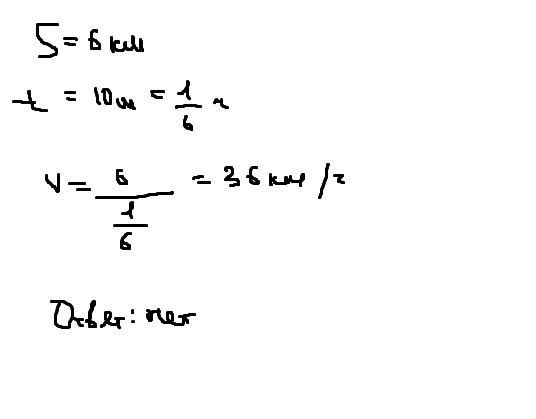 S = 6 км
t = 10 м = 1/6 ч
V = 6/(1/6) = 36 км/ч
Ответ: нет